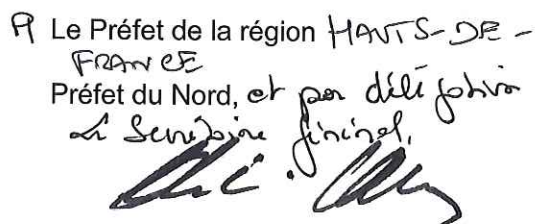 P/ Le Préfet de la région HAUTS-DE-
FRANCE
Préfet du Nord, et par délégation
Le Secrétaire général,